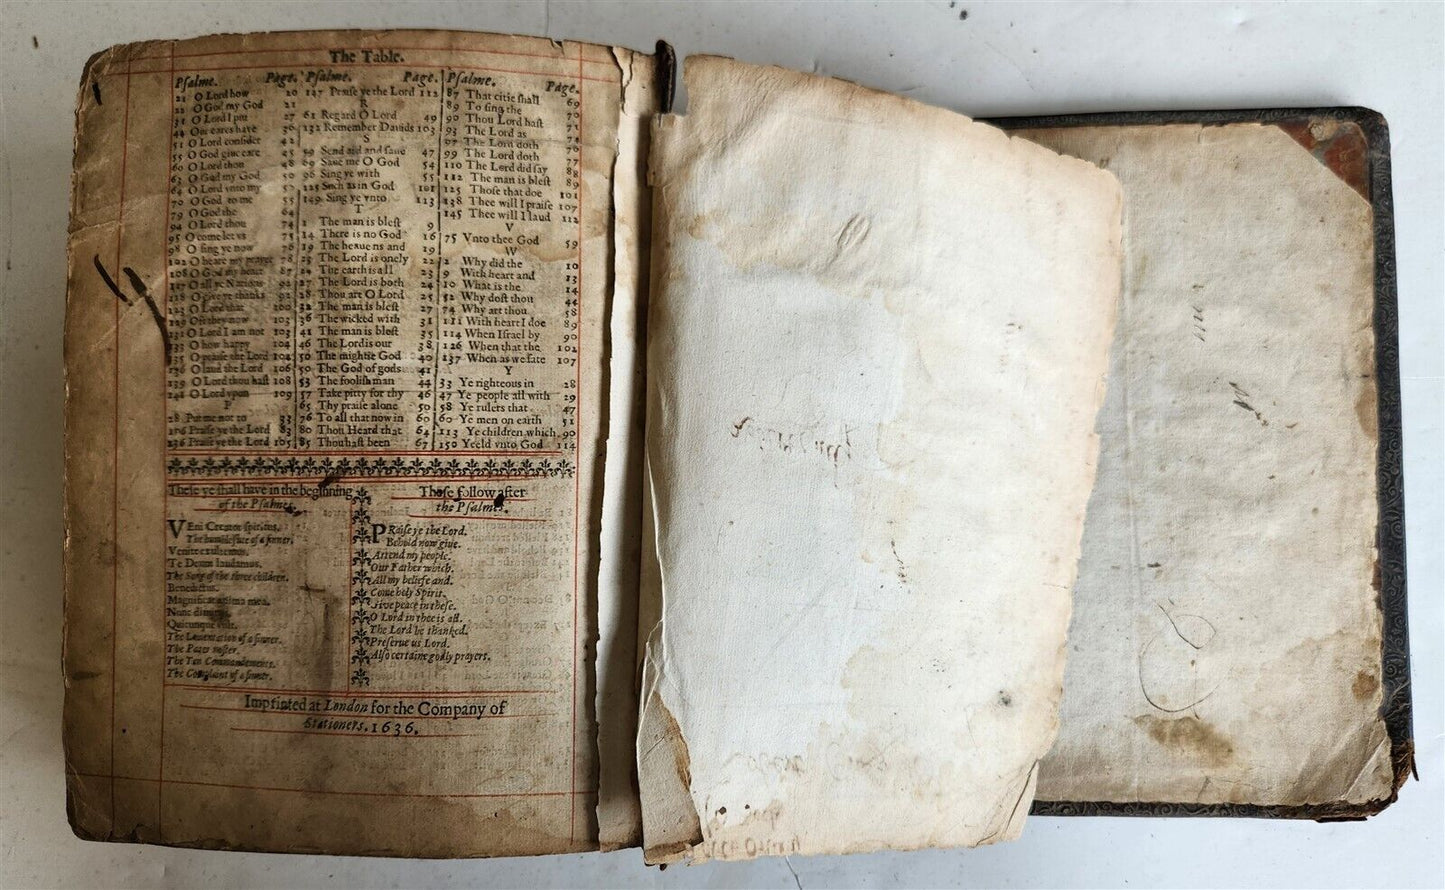 The Table.
Psalme. Page.
21 O Lord how 20
22 O God my God 21
31 O Lord I put 27
44 Our eares have 36
51 O Lord consider 42
55 O God give eare 45
60 O Lord thou 48
63 O God my God 50
64 O Lord vnto my 50
70 O God to me 55
79 O God the 64
94 O Lord thou 74
95 O come let vs 75
98 O sing ye now 76
102 O heare my prayer 78
108 O God my heart 87
117 O all ye Nations 92
118 O give ye thanks 92
123 O Lord that 100
129 Oft they now 103
131 O Lord I am not 103
133 O how happy 104
135 O praise the Lord 104
136 O laud the Lord 106
139 O Lord thou hast 108
141 O Lord vpon 109
P
28 Put me not to 33
106 Praise ye the Lord 83
136 Praise ye the Lord 105
Psalme. Page.
147 Praise ye the Lord 112
R
61 Regard O Lord 49
132 Remember Dauids 103
S
59 Send aid and saue 47
69 Saue me O God 54
96 Sing ye with 55
125 Such as in God 101
149 Sing ye vnto 113
T
1 The man is blest 9
14 There is no God 16
19 The heauens and 19
23 The Lord is onely 22
24 The earth is all 23
27 The Lord is both 24
28 Thou art O Lord 25
32 The man is blest 27
36 The wicked with 31
41 The man is blest 35
46 The Lord is our 38
50 The mightie God 40
50 The God of gods 41
53 The foolish man 44
57 Take pitty for thy 46
65 Thy praise alone 50
76 To all that now in 60
80 Thou Heard that 64
85 Thou hast been 67
Psalme. Page.
87 That citie shall 69
89 To sing the 70
90 Thou Lord hast 71
93 The Lord as 74
97 The Lord doth 76
99 The Lord doth 77
110 The Lord did say 88
112 The man is blest 89
125 Those that doe 101
138 Thee will I praise 107
145 Thee will I laud 112
V
75 Vnto thee God 59
W
2 Why did the 10
9 With heart and 13
10 What is the 14
52 Why dost thou 44
74 Why art thou 58
111 With heart I doe 89
114 When Israel by 90
126 When that the 102
137 When as we sate 107
Y
33 Ye righteous in 28
47 Ye people all with 29
58 Ye rulers that 47
60 Ye men on earth 51
113 Ye children which 90
150 Yeeld vnto God 114
These ye shall have in the beginning
of the Psalmes.
VEni Creator spiritus.
The humble sute of a sinner.
Venite exultemus.
Te Deum laudamus.
The Song of the three children.
Benedictus.
Magnificat anima mea.
Nunc dimittis.
Quicunque vult.
The Lamentation of a sinner.
The Pater noster.
The Ten Commandements.
The Complaint of a sinner.
Those follow after
the Psalmes.
PRaise ye the Lord.
Behold now give.
Attend my people.
Our Father which.
All my beliefe and.
Come holy Spirit.
Give peace in these.
O Lord in thee is all.
The Lord be thanked.
Preserue us Lord.
Also certaine godly prayers.
Imprinted at London for the Company of
Stationers. 1636.